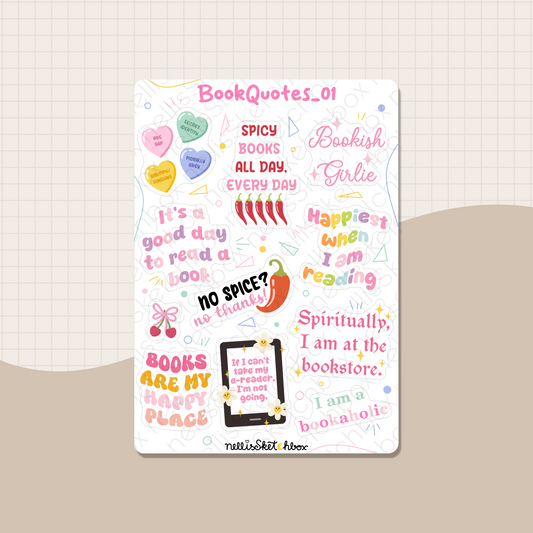 BookQuotes_01
AGE
GAP
SECRET
IDENTITY
MORALLY
GREY
SPICY
BOOKS
ALL DAY,
EVERY DAY
Bookish
Girlie
It's a
good day
to read a
book
Happiest
when
I am
reading
NO SPICE?
no thanks!
Spiritually,
I am at the
bookstore.
BOOKS
ARE MY
HAPPY
PLACE
If I can't
take my
e-reader.
I'm not
going.
I am a
bookaholic
nellisSketchbox